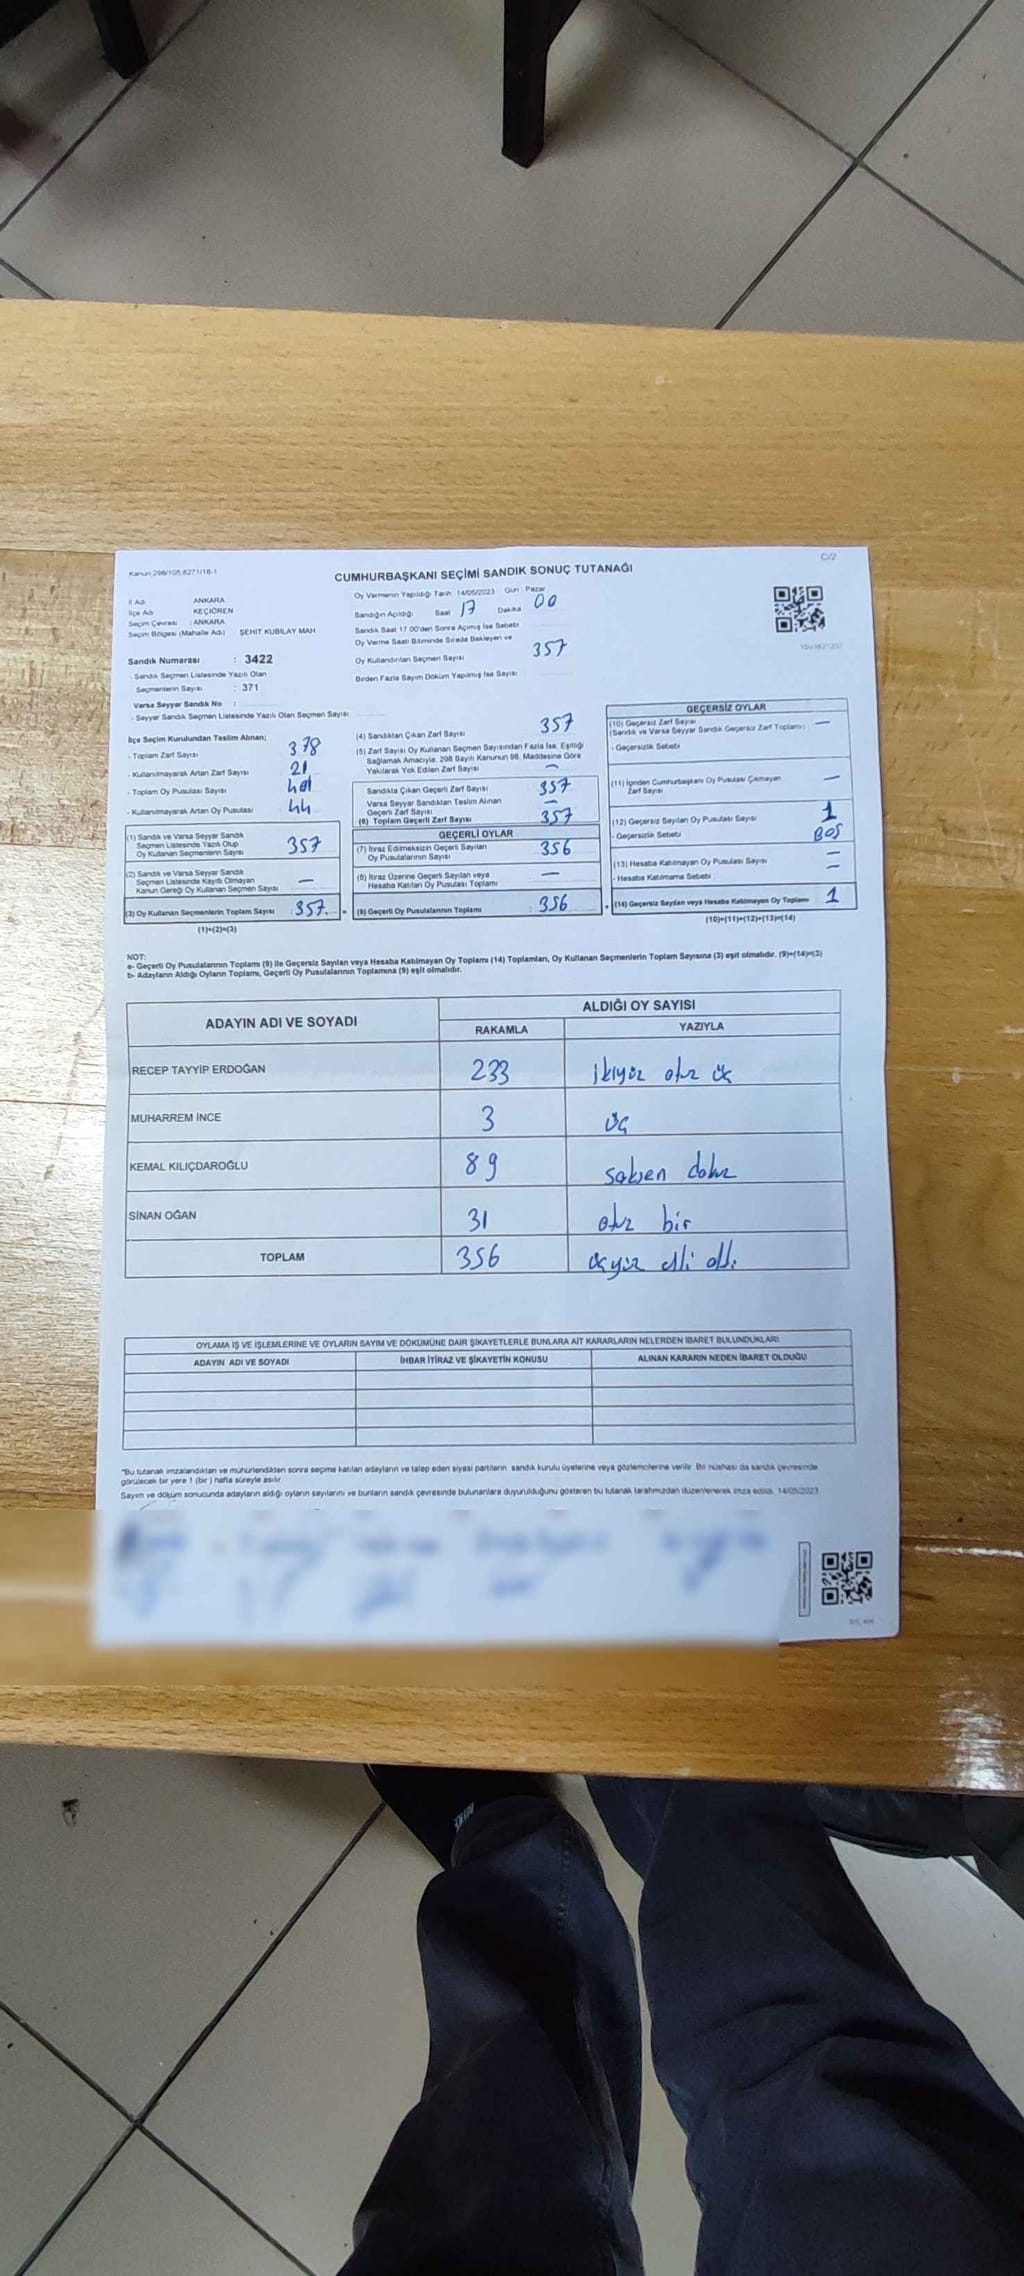 C/2
Kanun 298/105,8271/18-1
CUMHURBAŞKANI SEÇİMİ SANDIK SONUÇ TUTANAĞI
İl Adı ANKARA
İlçe Adı KEÇİÖREN
Seçim Çevresi : ANKARA
Seçim Bölgesi (Mahalle Adı) ŞEHİT KUBİLAY MAH
Sandık Numarası : 3422
- Sandık Seçmen Listesinde Yazılı Olan
Seçmenlerin Sayısı : 371
Varsa Seyyar Sandık No :
- Seyyar Sandık Seçmen Listesinde Yazılı Olan Seçmen Sayısı
Oy Vermenin Yapıldığı Tarih 14/05/2023 Gün Pazar
Sandığın Açıldığı Saat 17 Dakika 00
Sandık Saat 17.00'den Sonra Açılmış İse Sebebi
Oy Verme Saati Bitiminde Sırada Bekleyen ve
Oy Kullandırılan Seçmen Sayısı 357
Birden Fazla Sayım Döküm Yapılmış İse Sayısı
İlçe Seçim Kurulundan Teslim Alınan;
- Toplam Zarf Sayısı 378
- Kullanılmayarak Artan Zarf Sayısı 21
- Toplam Oy Pusulası Sayısı 401
- Kullanılmayarak Artan Oy Pusulası 44
(1) Sandık ve Varsa Seyyar Sandık
Seçmen Listesinde Yazılı Olup
Oy Kullanan Seçmenlerin Sayısı 357
(2) Sandık ve Varsa Seyyar Sandık
Seçmen Listesinde Kayıtlı Olmayan
Kanun Gereği Oy Kullanan Seçmen Sayısı —
(3) Oy Kullanan Seçmenlerin Toplam Sayısı : 357
(1)+(2)=(3)
(4) Sandıktan Çıkan Zarf Sayısı 357
(5) Zarf Sayısı Oy Kullanan Seçmen Sayısından Fazla İse, Eşitliği
Sağlamak Amacıyla, 298 Sayılı Kanunun 98. Maddesine Göre
Yakılarak Yok Edilen Zarf Sayısı —
Sandıkta Çıkan Geçerli Zarf Sayısı 357
Varsa Seyyar Sandıktan Teslim Alınan
Geçerli Zarf Sayısı —
(6) Toplam Geçerli Zarf Sayısı 357
GEÇERLİ OYLAR
(7) İtiraz Edilmeksizin Geçerli Sayılan
Oy Pusulalarının Sayısı 356
(8) İtiraz Üzerine Geçerli Sayılan veya
Hesaba Katılan Oy Pusulası Toplamı —
= (9) Geçerli Oy Pusulalarının Toplamı 356
GEÇERSİZ OYLAR
(10) Geçersiz Zarf Sayısı —
(Sandık ve Varsa Seyyar Sandık Geçersiz Zarf Toplamı)
- Geçersizlik Sebebi
(11) İçinden Cumhurbaşkanı Oy Pusulası Çıkmayan
Zarf Sayısı —
(12) Geçersiz Sayılan Oy Pusulası Sayısı 1
- Geçersizlik Sebebi BOŞ
(13) Hesaba Katılmayan Oy Pusulası Sayısı —
- Hesaba Katılmama Sebebi —
+ (14) Geçersiz Sayılan veya Hesaba Katılmayan Oy Toplamı 1
(10)+(11)+(12)+(13)=(14)
NOT:
a- Geçerli Oy Pusulalarının Toplamı (9) ile Geçersiz Sayılan veya Hesaba Katılmayan Oy Toplamı (14) Toplamları, Oy Kullanan Seçmenlerin Toplam Sayısına (3) eşit olmalıdır. (9)+(14)=(3)
b- Adayların Aldığı Oyların Toplamı, Geçerli Oy Pusulalarının Toplamına (9) eşit olmalıdır.
ADAYIN ADI VE SOYADI ALDIĞI OY SAYISI
RAKAMLA YAZIYLA
RECEP TAYYİP ERDOĞAN 233 ikiyüz otuz üç
MUHARREM İNCE 3 üç
KEMAL KILIÇDAROĞLU 89 seksen dokuz
SİNAN OĞAN 31 otuz bir
TOPLAM 356 üçyüz elli altı
OYLAMA İŞ VE İŞLEMLERİNE VE OYLARIN SAYIM VE DÖKÜMÜNE DAİR ŞİKAYETLERLE BUNLARA AİT KARARLARIN NELERDEN İBARET BULUNDUKLARI
ADAYIN ADI VE SOYADI İHBAR İTİRAZ VE ŞİKAYETİN KONUSU ALINAN KARARIN NEDEN İBARET OLDUĞU
*Bu tutanak imzalandıktan ve mühürlendikten sonra seçime katılan adayların ve talep eden siyasi partilerin sandık kurulu üyelerine veya gözlemcilerine verilir. Bir nüshası da sandık çevresinde
görülecek bir yere 1 (bir) hafta süreyle asılır
Sayım ve döküm sonucunda adayların aldığı oyların sayılarını ve bunların sandık çevresinde bulunanlara duyurulduğunu gösteren bu tutanak tarafımızdan düzenlenerek imza edildi. 14/05/2023
NIKE